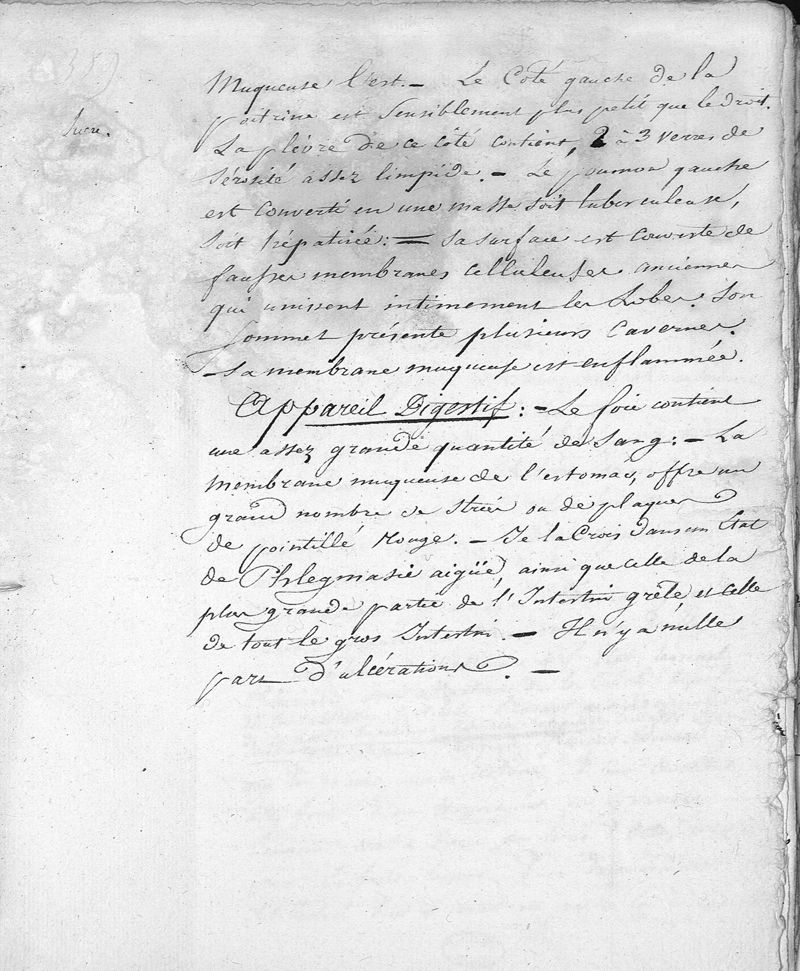 35)
Sucre.
Muqueuse l'est. — Le Coté gauche de la
poitrine est Sensiblement plus petit que le droit.
La plèvre de ce côté contient, 2 à 3 verres de
Sérosité assez limpide. — Le poumon gauche
est converti en une masse soit tuberculeuse,
soit hépatisée: — Sa surface est couverte de
fausses membranes celluleuses anciennes
qui unissent intimement les Lobes. Son
Sommet présente plusieurs Cavernes.
— Sa membrane muqueuse est enflammée.
Appareil Digestif: — Le foie contient
une assez grande quantité de Sang: — La
membrane muqueuse de l'estomac, offre un
grand nombre de stries ou de plaques
de pointillé rouge. — Je la Crois dans un Etat
de Phlegmasie aigüe, ainsi que celle de la
plus grande partie de l'Intestin grêle et celle
de tout le gros Intestin. — Il n'y a nulle
part d'ulcérations. —